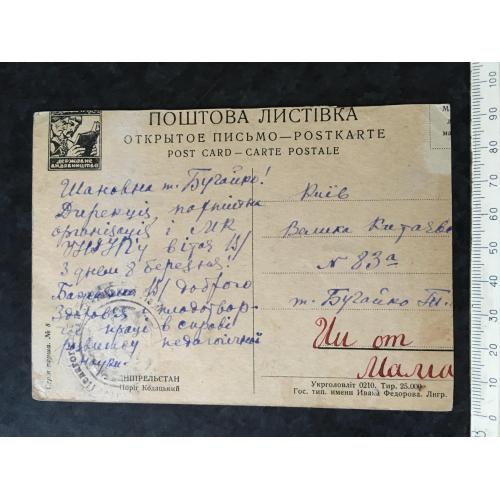 ДЕРЖАВНЕ ВИДАВНИЦТВО
ПОШТОВА ЛИСТІВКА
ОТКРЫТОЕ ПИСЬМО—POSTKARTE
POST CARD—CARTE POSTALE
Шановна т. Бугайко!
Дирекція, партійна
організація і МК
УНДІПу вітає Вас
З днем 8 березня!
Бажаємо Вам доброго
Здоровя і плодотвор-
ної праці в справі
розвитку педагогічної
науки.
Київ
Велика Китаєвс
№ 83а
т. Бугайко Т.
от
Мама
Серія перша. № 8
ДНІПРЕЛЬСТАН
Поріг Кодацький
Укрголовліт 0210. Тир. 25.000
Гос. тип. имени Ивана Федорова. Лнгр.
100
90
80
70
60
50
40
30
20
10